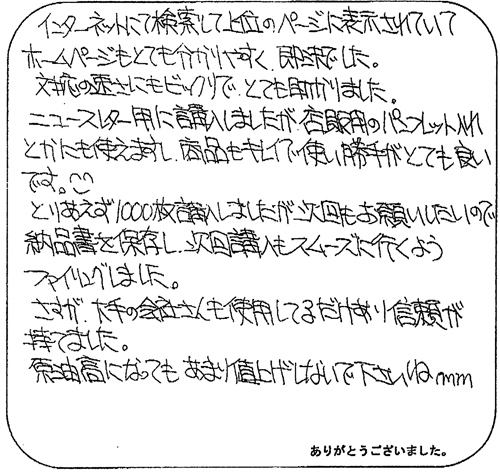 インターネットにて検索して上位のページに表示されていて
ホームページもとても分かりやすく、即決でした。
対応の速さにもビックリで、とても助かりました。
ニュースレター用に購入しましたが、店販用のパンフレット入れ
とかにも使えますし、商品もキレイで使い勝手がとても良い
です。
とりあえず1000枚購入しましたが次回もお願いしたいので
納品書を保存し、次回購入もスムーズに行くよう
ファイリングしました。
さすが、大手の会社さんも使用してるだけあり信頼が
持てました。
原油高になっても あまり値上げしないで下さいね mm
ありがとうございました。